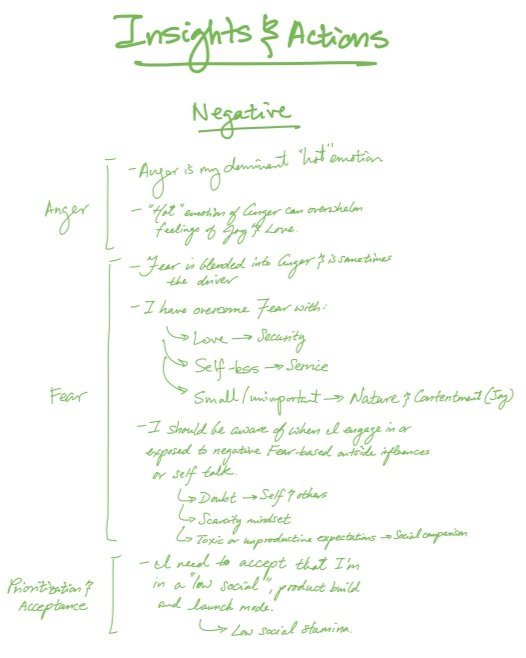 Insights & Actions
Negative
Anger
- Anger is my dominant "hot" emotion
- "Hot" emotion of Anger can overwhelm
feelings of Joy & Love.
Fear
- Fear is blended into Anger & is sometimes
the driver
- I have overcome Fear with:
↳ Love → Security
↳ Self-less → Service
↳ Small/unimportant → Nature & Contentment (Joy)
- I should be aware of when I engage in or
exposed to negative Fear-based outside influences
or self talk.
↳ Doubt → Self & others
↳ Scarcity mindset
↳ Toxic or unproductive expectations → Social comparison
Prioritization &
Acceptance
- I need to accept that I'm
in a "low social", product build
and launch mode.
↳ Low social stamina.